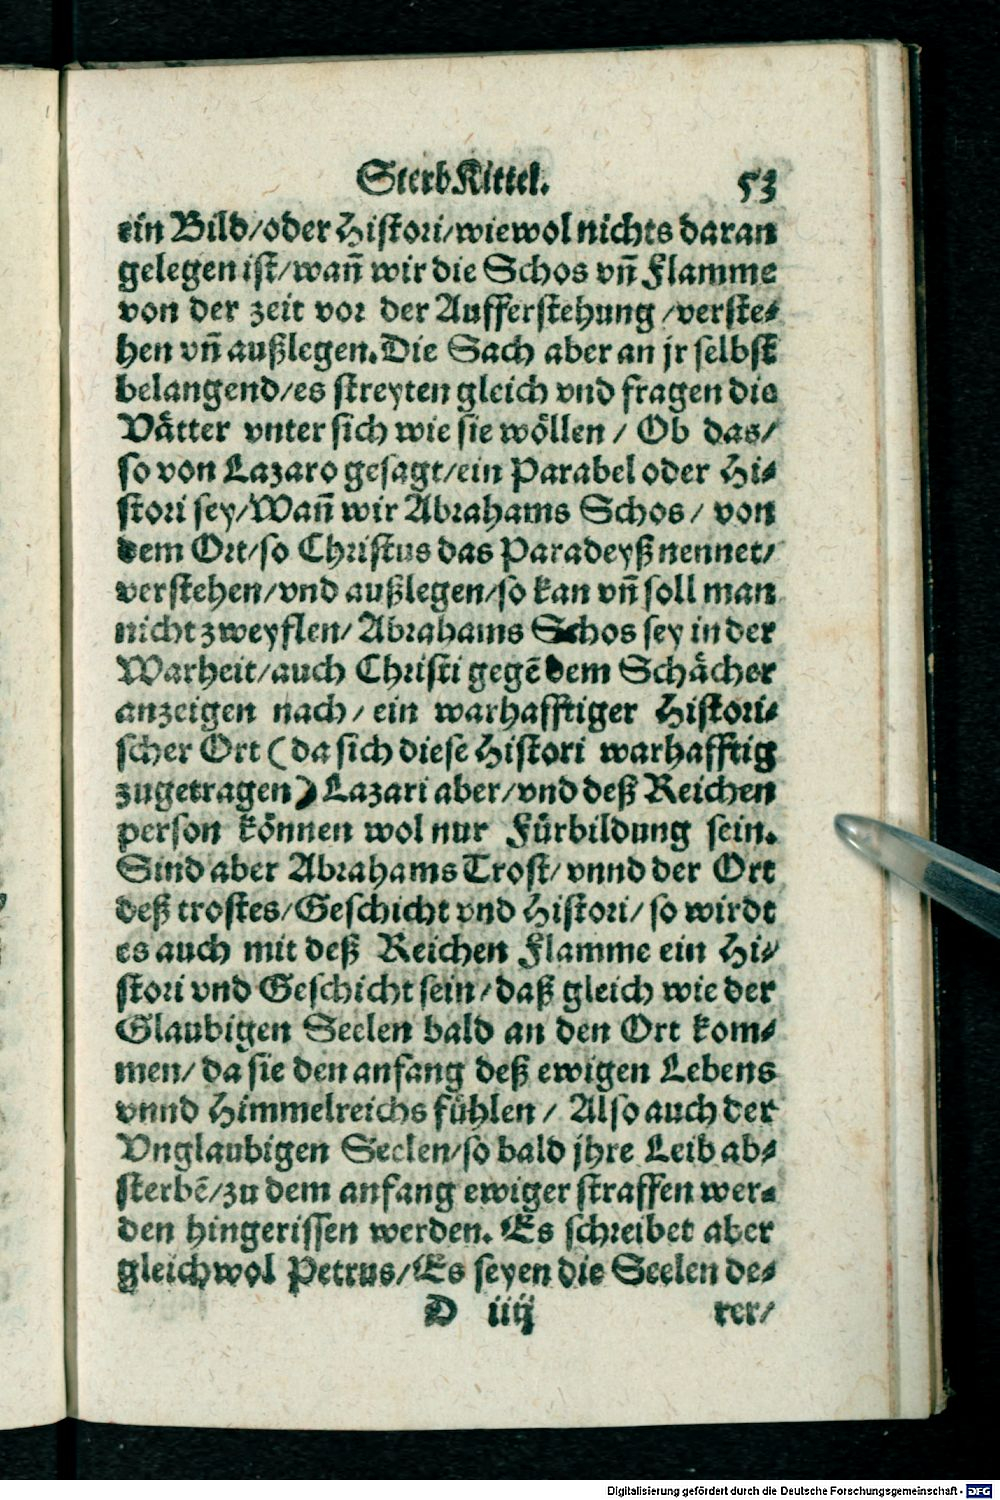 SterbKittel. 53
ein Bild/oder Histori/wiewol nichts daran
gelegen ist/wañ wir die Schos vñ Flamme
von der zeit vor der Aufferstehung /verste-
hen vñ außlegen. Die Sach aber an jr selbst
belangend/es streyten gleich vnd fragen die
Vätter vnter sich wie sie wöllen / Ob das/
so von Lazaro gesagt/ein Parabel oder Hi-
stori sey/Wañ wir Abrahams Schos/ von
dem Ort/so Christus das Paradeyß nennet/
verstehen/vnd außlegen/so kan vñ soll man
nicht zweyflen/ Abrahams Schos sey in der
Warheit/auch Christi gegẽ dem Schächer
anzeigen nach/ ein warhafftiger Histori-
scher Ort (da sich diese Histori warhafftig
zugetragen) Lazari aber/vnd deß Reichen
person können wol nur Fürbildung sein.
Sind aber Abrahams Trost/ vnnd der Ort
deß trostes/Geschicht vnd Histori/ so wirdt
es auch mit deß Reichen Flamme ein Hi-
stori vnd Geschicht sein/daß gleich wie der
Glaubigen Seelen bald an den Ort kom-
men/ da sie den anfang deß ewigen Lebens
vnnd Himmelreichs fühlen / Also auch der
Vnglaubigen Seelen/so bald jhre Leib ab-
sterbẽ/zu dem anfang ewiger straffen wer-
den hingerissen werden. Es schreibet aber
gleichwol Petrus/Es seyen die Seelen de-
D iiij rer/
Digitalisierung gefördert durch die Deutsche Forschungsgemeinschaft - DFG